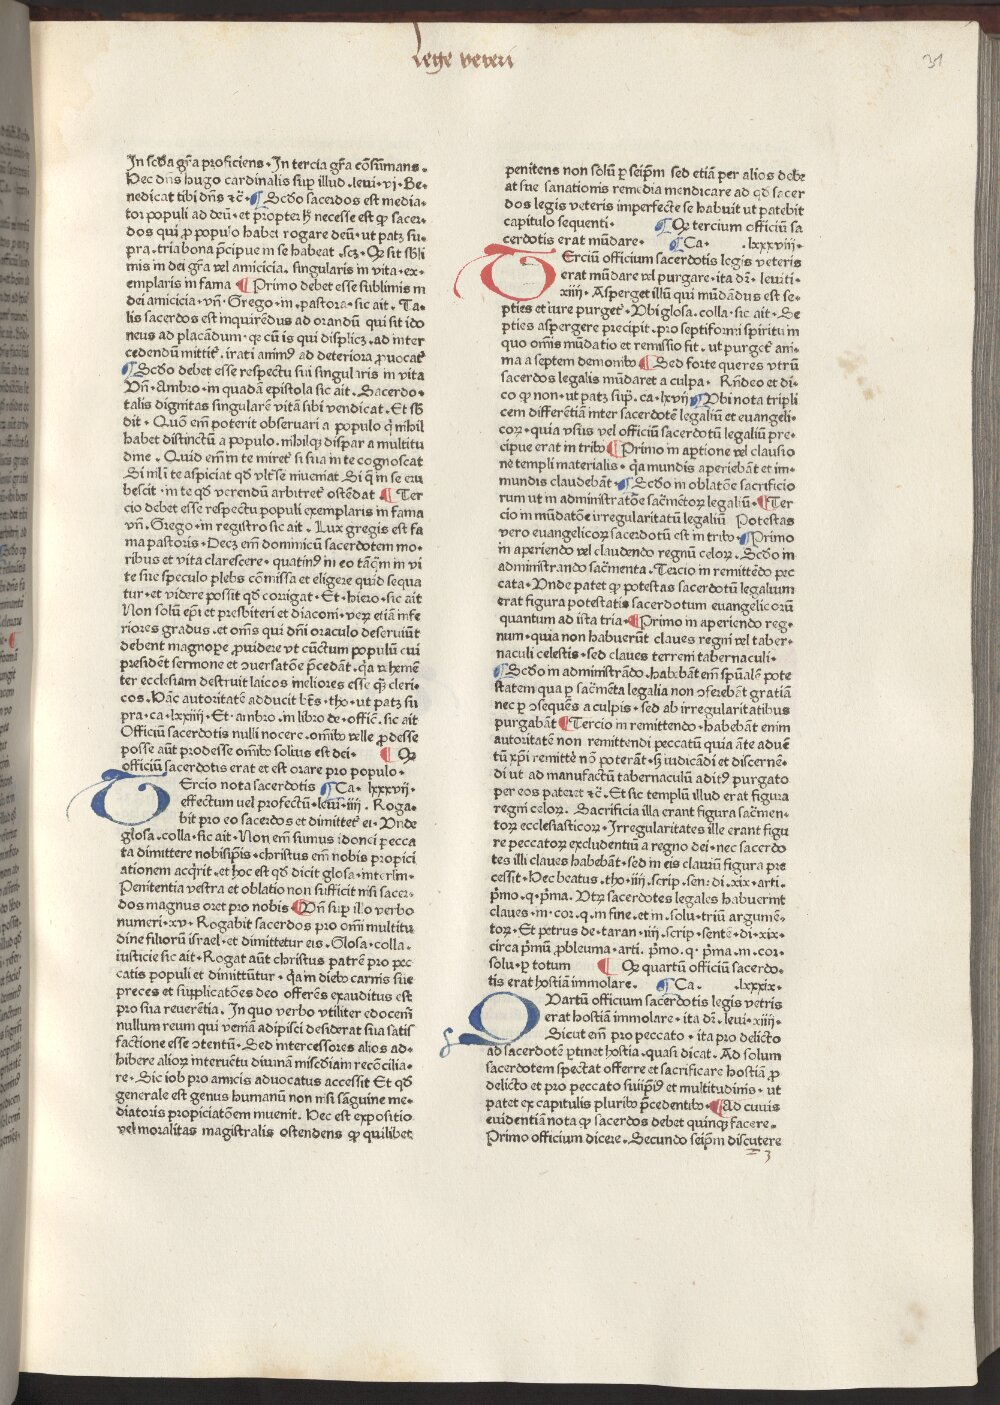 Lege veteri
31
In scďa gr̄a proficiens. In tercia gr̄a cōsūmans.
Hec dn̄s hugo cardinalis sup̱ illud. leui. vj. Be-
nedicat tibi dn̄s ⁊c̄. ¶ Scďo sacerdos est media-
tor populi ad deū. et propter ħ necesse est ꝙ sacer-
dos qui ꝓ populo habet rogare deū. ut patꝫ su-
pra. tria bona p̄cipue in se habeat. scꝫ. Ꝙ sit sbli
mis in dei gr̄a vel amicicia. singularis in vita. ex-
emplaris in fama ¶ Primo debet esse sublimis in
dei amicicia. vn̄. Grego. in. pastora. sic ait. Ta-
lis sacerdos est inquirēdus ad orandū qui sit ido
neus ad placandum. qꝛ cū is qui displicꝫ. ad inter
cedendū mittit᷑. irati animꝰ ad deteriora ꝓuocat᷑
¶ Scďo debet esse respectu sui singularis in vita
Vn̄. Ambro. in quadā epistola sic ait. Sacerdo-
talis dignitas singularē vitā sibi vendicat. Et sb
dit. Quō em̄ poterit obseruari a populo q̇ nihil
habet distinctū a populo. nihilqꝫ dispar a multitu
dine. Quid em̄ in te miret᷑ si sua in te cognoscat
Si nĺi te aspiciat qđ vlt̄ se inueniat Si q̄ in se eru
bescit. in te qđ verendū arbitret᷑ ostēdat ¶ Ter
cio debet esse respectu populi exemplaris in fama
vn̄. Grego. in registro sic ait. Lux gregis est fa
ma pastoris. Decꝫ em̄ dominicū sacerdotem mo-
ribus et vita clarescere. quatinꝰ in eo tāq̄m in vi
te sue speculo plebs cōmissa et eligere quid sequa
tur. et videre possit qđ corrigat. Et. hiero. sic ait
Non solū ep̄i et presbiteri et diaconi. veꝝ etiā infe
riores gradus. et om̄s qui dn̄i oraculo deseruiūt
debent magnoꝑe ꝓuidere vt cūctum populū cui
presidēt sermone et ꝯuersatōe p̄cedāt. q̇a vehemē
ter ecclesiam destruit laicos meliores esse q̄ꝫ cleri-
cos. Hāc autoritatē adducit bt̄s. tho. ut patꝫ su
pra. ca. lxxiiij. Et. ambro. in libro de. offic̄. sic ait
Officiū sacerdotis nulli nocere. om̄ibꝰ velle ꝓdesse
posse aūt prodesse om̄ibꝰ solius est dei. ¶ Ꝙ
officiū sacerdotis erat et est orare pro populo.
Tercio nota sacerdotis ¶ Ca. lxxxvij.
effectum uel profectū. leui. iiij. Roga-
bit pro eo sacerdos et dimittet᷑ ei. Vnde
glosa. colla. sic ait. Non em̄ sumus idonei pecca
ta dimittere nobisip̄is. christus em̄ nobis propici
ationem acq̇rit. et hoc est qđ dicit glosa. int̄lin.
Penitentia vestra et oblatio non sufficit nisi sacer-
dos magnus oret pro nobis. ¶ Vn̄ sup̱ illo verbo
numeri. xv. Rogabit sacerdos pro om̄i multitu
dine filiorū israel. et dimittetur eis. Glosa. colla.
iusticie sic ait. Rogat aūt christus patrē pro pec
catis populi et dimittūtur. q̇a in diebꝰ carnis sue
preces et supplicatōes deo offerēs exauditus est
pro sua reuerētia. In quo verbo vtiliter edocem̄
nullum reum qui venia adipisci desiderat sua satis
factione esse ꝯtentū. Sed intercessores alios ad-
hibere alioꝝ interuētu diuinā misc̄diam recōcilia-
re. Sic iob pro amicis advocatus accessit Et qđ
generale est genus humanū non nisi sāguine me-
diatoris propiciatōem inuenit. Hec est expositio
vel moralitas magistralis ostendens ꝙ quilibet
penitens non solū ꝑ seip̄m sed etiā per alios debe
at sue sanationis remedia mendicare ad qđ sacer
dos legis veteris imperfecte se habuit ut patebit
capitulo sequenti. ¶ Ꝙ tercium officiū sa
cerdotis erat mūdare. ¶ Ca. .lxxxviij.
Terciū officium sacerdotis legis veteris
erat mūdare vel purgare. ita dr̄. leuiti-
xiiij. Asperget illū qui mūdādus est se-
pties et iure purget᷑. Vbi glosa. colla. sic ait. Se
pties aspergere precipit. pro septiformi spiritu in
quo om̄is mūdatio et remissio fit. ut purget᷑ ani-
ma a septem demonibꝰ ¶ Sed forte queres vtrū
sacerdos legalis mūdaret a culpa. Rn̄deo et di-
co ꝙ non. ut patꝫ sup̱. ca. lxvij ¶ Vbi nota tripli
cem differētiā inter sacerdotē legaliū et euangeli-
coꝝ. quia vsus vel officiū sacerdotū legaliū pre-
cipue erat in tribꝰ ¶ Primo in aꝑtione vel clausio
ne templi materialis. q̇a mundis aperiebāt et im-
mundis claudebāt. ¶ Scďo in oblatōe sacrificio
rum ut in administratōe sac̄mētoꝝ legaliū. ¶ Ter
cio in mūdatōe irregularitatū legaliū Potestas
vero euangelicoꝝ sacerdotū est in tribꝰ. ¶ Primo
in aperiendo vel claudendo regnū celoꝝ. Scďo in
administrando sac̄menta. Tercio in remittēdo pec
cata. Vnde patet ꝙ potestas sacerdotū legalium
erat figura potestatis sacerdotum euangelicorū
quantum ad ista tria. ¶ Primo in aperiendo reg-
num. quia non habuerūt claves regni vel taber-
naculi celestis. sed claves terreni tabernaculi.
¶ Scďo in administrādo. habebāt em̄ sp̄ualē pote
statem qua ꝑ sac̄mēta legalia non ꝯferebāt gratiā
nec ꝑ ꝯsequēs a culpis. sed ab irregularitatibus
purgabāt ¶ Tercio in remittendo. habebāt enim
autoritatē non remittendi peccatū quia āte aduē
tū xp̄i remitte nō poterāt. sꝫ iudicādi et discernē-
di ut ad manufactū tabernaculū aditꝰ purgato
per eos pateret ⁊c̄. Et sic templū illud erat figura
regni celoꝝ. Sacrificia illa erant figura sac̄men-
toꝝ ecclesiasticoꝝ. Irregularitates ille erant figu
re peccatoꝝ excludentiū a regno dei. nec sacerdo
tes illi claues habebāt. sed in eis clauiū figura pre
cessit. Hec beatus. tho. iiij. scrip. sen: di. xix. arti.
p̄mo. q. p̄ma. Vtꝝ sacerdotes legales habuerint
claves. in. cor. q. in fine. et in. solu. triū argumē-
toꝝ. Et petrus de. taran. iiij. scrip. sentē. di. xix.
circa p̄mū ꝓbleuma. arti. p̄mo. q. p̄ma. in. cor.
solu. ꝑ totum ¶ Ꝙ quartū officiū sacerdo-
tis erat hostiā immolare. ¶ Ca. .lxxxix.
Quartū officium sacerdotis legis veteris
erat hostiā immolare. ita dr̄. leui. xiiij.
Sicut em̄ pro peccato. ita pro delicto
ad sacerdotē ꝑtinet hostia. quasi dicat. Ad solum
sacerdotem spectat offerre et sacrificare hostiā ꝑ
delicto et pro peccato suiip̄iꝰ et multitudinis. ut
patet ex capitulis pluribꝰ p̄cedentibꝰ. ¶ Ad cuius
euidentiā nota ꝙ sacerdos debet quinqꝫ facere.
Primo officium dicere. Secundo seip̄m discutere